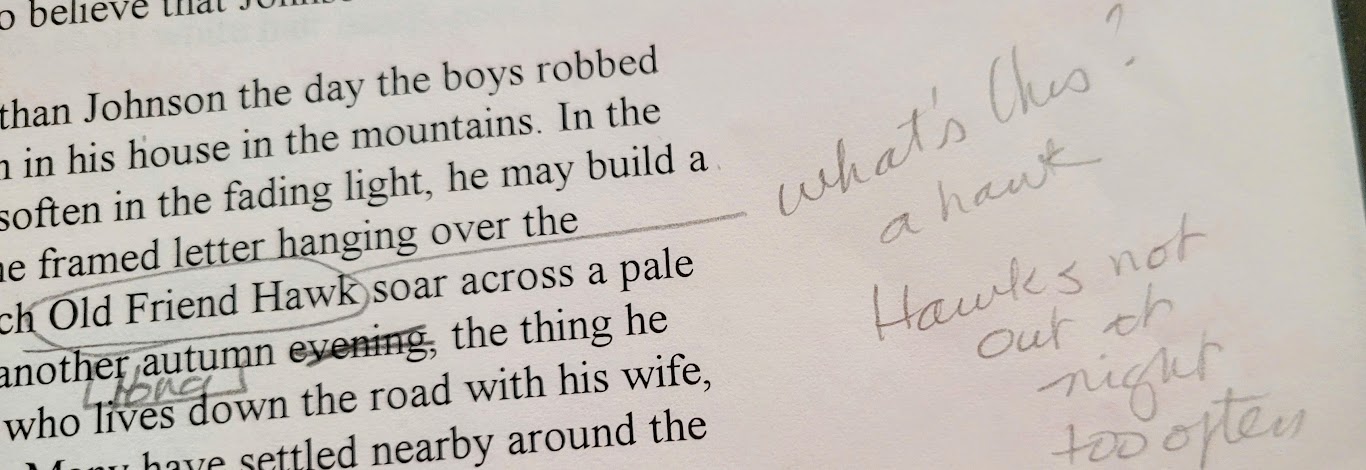 o believe that
than Johnson the day the boys robbed
n in his house in the mountains. In the
soften in the fading light, he may build a
he framed letter hanging over the
ch Old Friend Hawk soar across a pale
another autumn evening, the thing he
who lives down the road with his wife,
have settled nearby around the
what's this?
a hawk
Hawks not
out at
night
too often